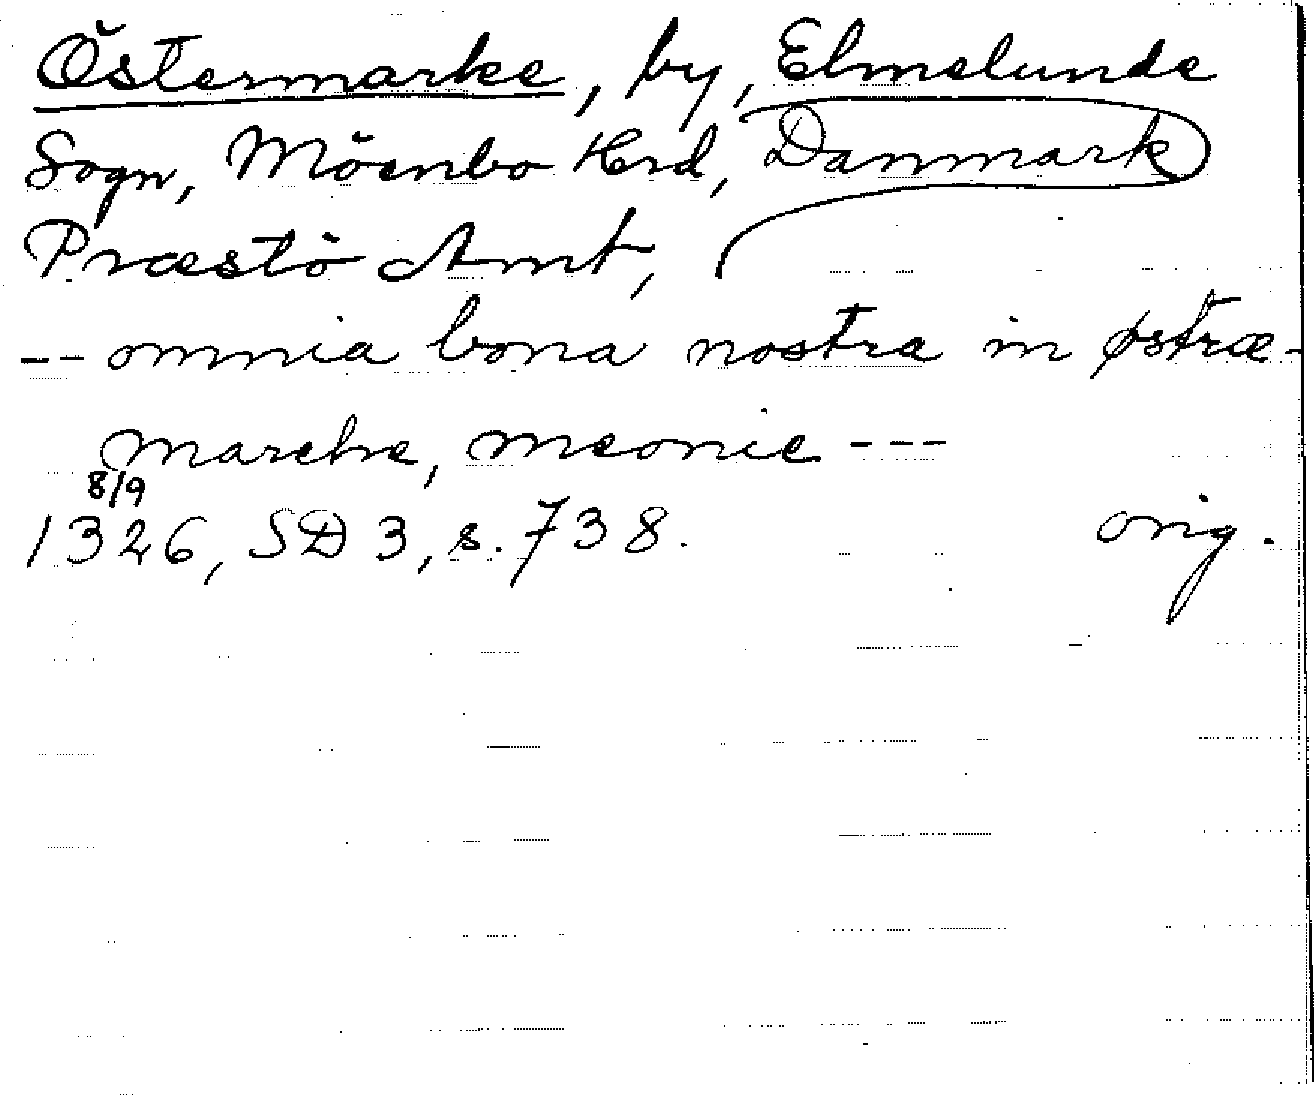 Östermarke, by, Elmelunde
Sogn, Möenbo Hrd, Danmark
Præstö Amt,
-- omnia bona nostra in østræ-
marche, meonie ---
8/9
1326, SD 3, s. 738. orig.